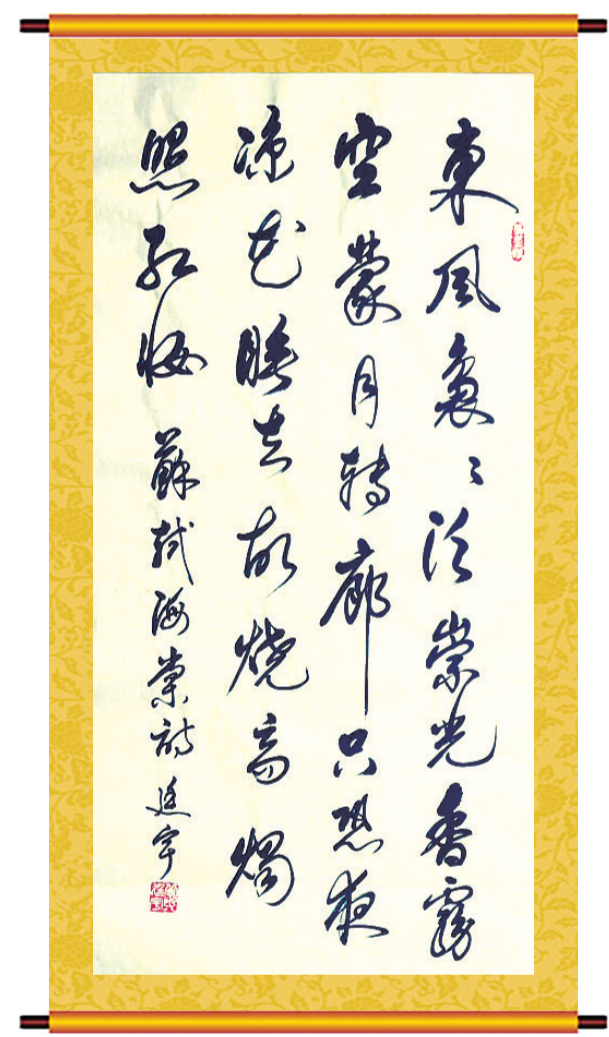 東風裊〻泛崇光香霧
空蒙月轉廊只恐夜
深花睡去故燒高燭
照紅妝 蘇軾海棠詩 廷宇